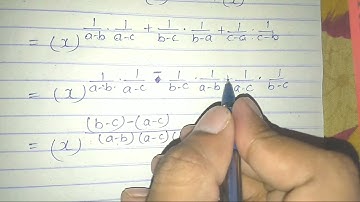 = (x)^{1/(a-b) · 1/(a-c) + 1/(b-c) · 1/(b-a) + 1/(c-a) · 1/(c-b)}
= (x)^{1/(a-b) · 1/(a-c) - 1/(b-c) · 1/(a-b) + 1/(a-c) · 1/(b-c)}
= (x)^{(b-c)-(a-c) / (a-b)(a-c)(